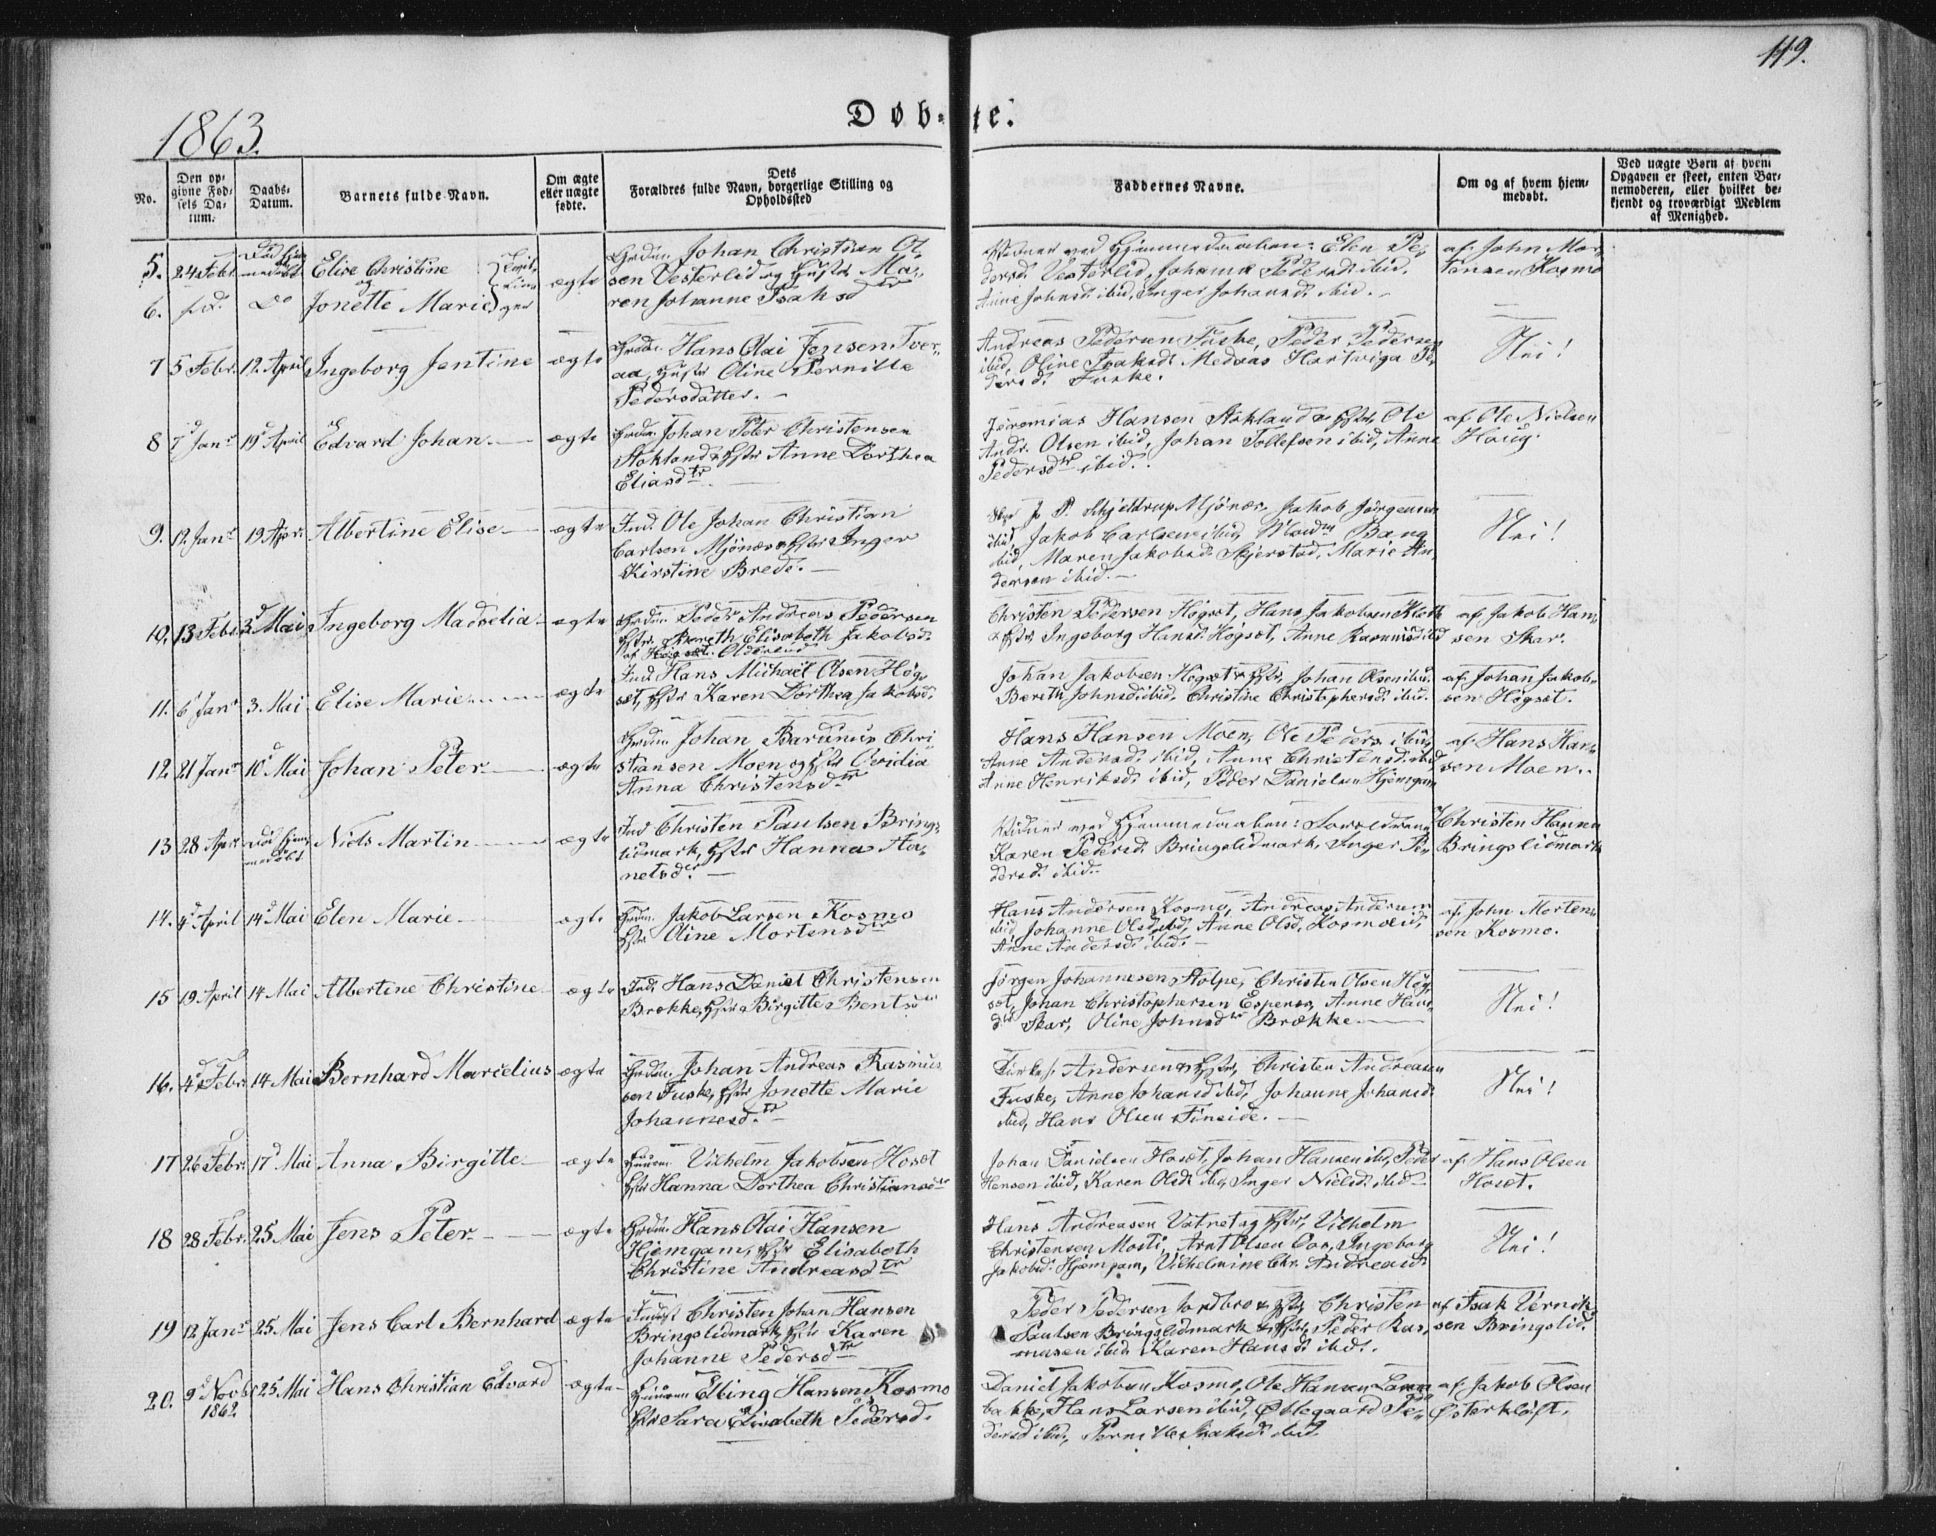 119.
1863.
Døbte.
No.
Den opgivne Fødsels Datum.
Daabs-Datum.
Barnets fulde Navn.
Om ægte eller uægte fødte.
Dets Forældres fulde Navn, borgerlige Stilling og Opholdssted
Faddernes Navne.
Om og af hvem hjemmedøbt.
Ved uægte Børn af hvem Opgaven er skeet, enten Barnemoderen, eller hvilket bekjendt og troværdigt Medlem af Menighed.
5. 24 Febr. Elise Christine ægte
og
6. Do Jonette Marie
Johan Christian Ol-
sen Vesterlid og Hustr. Ma-
ren Johanne Isaksdtr
Elen Pe-
dersd. Vesterlid, Johanna Pedersd. ibid.
Anne Johnsd. ibid, Inger Johansd. ibid.
af John Mor-
tensen Kosmo
7 5 Febr. 12. April Ingeborg Jentine ægte
Hans Olai Jensen Tver-
aa, Hustr Oline Pernille
Pedersdatter.
Andreas Pedersen Fuske, Peder Pedersen
ibid, Oline Isaksd. Medaas Hartviga Pe-
dersd. Fuske.
Nei!
8 7 Jan. 19 April Edvard Johan ægte
Johan Peter Christensen
Stokland & Hstr Anne Dorthea
Eliasdtr.
Jeremias Hansen Stokland & Hstr, Ole
Andr. Olsen ibid, Johan Tollefsen ibid, Anne
Pedersdtr ibid.
af Ole Nielsen
Haug.
9. 12 Jan. 19 Apr. Albertine Elise ægte
Ind. Ole Johan Christian
Carlsen Mjønes & Hstr Inger
Kirstine Breds.
P. Schjeldrup Mjønes, Jakob Jørgensen
ibid Jakob Carlsen ibid, Bang
ibid, Maren Jakobsd. Skjerstad, Marie An-
dersen ibid.
Nei!
10. 13 Febr. 3 Mai Ingeborg Madselia ægte
Peder Andreas Pedersen
Hstr. Bereth Elisabeth Jakobsd.
Christen Pedersen Høgset, Hans Jakobsen Kleth
& Hstr Ingeborg Hansd. Høgset, Anne Rasmusd ibid
af Jakob Han-
sen Skar.
11. 6 Jan. 3. Mai Elise Marie ægte
Ind. Hans Michael Olsen Høg-
set, Hstr Karen Dorthea Jakobsd.
Johan Jakobsen Høgset & Hstr, Johan Olsen ibid.
Bereth Johnsd. ibid, Christine Christophersd. ibid.
af Johan Jakob-
sen Høgset.
12. 21 Jan. 10 Mai Johan Peter ægte
Johan Bardinus Chri-
stiansen Moen og Hstr Ovidia
Anna Christensdtr
Hans Hansen Moen, Ole Peders. ibid,
Anne Andersd. ibid, Anne Christensd. ibid,
Anne Henriksd. ibid, Peder Danielsen Hjemgam
af Hans Han-
sen Moen.
13 28 Apr. Niels Martin ægte
Ind Christen Paulsen Brings-
lidmark, Hstr Hanna Ha-
nelsdr.
Karen Pedersd. Bringslidmark, Inger Pe-
dersd. ibid.
Christen Hansen
Bringslidmark
14. 4 April 14 Mai Elen Marie ægte
Jakob Larsen Kosmo
Hstr Oline Mortensdtr
Hans Andersen Kosmo, Andreas Andersen
ibid Johanne Olsd. ibid, Anne Olsd. Kosmoeid,
Anne Andersd. ibid.
af John Morten-
sen Kosmo.
15 19 April 14 Mai Albertine Christine ægte
Ind. Hans Daniel Christensen
Brække, Hstr Birgitte Bentsdtr
Jørgen Johannesen Stolpe, Christen Olsen Høg-
set, Johan Christophersen Espenes, Anne Hans-
dtr Skar, Oline Johnsdtr Brække
Nei!
16. 4 Febr. 14 Mai Bernhard Marcelius ægte
Johan Andreas Rasmus-
sen Fuske, Hstr Jonette Marie
Johannesdtr.
Andersen & Hstr, Christen Andreasen
Fuske, Anne Johansd ibid, Johanne Johansd.
ibid, Hans Olsen Fineide.
Nei!
17 26 Febr. 17 Mai Anna Birgitte ægte
Vilhelm Jakobsen Hoset
Hstr Hanna Dorthea Christiansdtr
Johan Danielsen Hoset, Johan Hansen ibd, Peder
Hensen ibid, Karen Olsdr ibid, Inger Nielsd. ibid
af Hans Olsen
Hoset.
18 28 Febr. 25 Mai Jens Peter ægte
Hans Olai Hansen
Hjemgam, Hstr Elisabeth
Christine Andreasdtr
Hans Andreasen Vatnet og Hstr, Vilhelm
Christensen Mosti, Arnt Olsen Ingeborg
Jakobsd. Hjemgam, Vilhelmine Chr. Andreasd.
Nei!
19 12 Jan. 25 Mai Jens Carl Bernhard ægte
Christen Johan Hansen
Bringslidmark, Hstr Karen
Johanne Pedersdtr
Peder Pedersen Jordbro & Hstr Christen
Paulsen Bringslidmark & Hstr, Peder Ras-
musen ibid, Karen Hansd. ibid.
af Isak Vernik-
sen Bringslid
20. 9 Novbr 25 Mai Hans Christian Edvard ægte
1862
Elling Hansen Kosmo
Hstr Sara Elisabeth Pedersd.
Daniel Jakobsen Kosmo, Ole Hansen
bakke, Hans Larsen ibid, Ødlegaard Pe-
dersd ibid, Pernille Isaksd. ibid
af Jakob Olsen
Østerkløft.